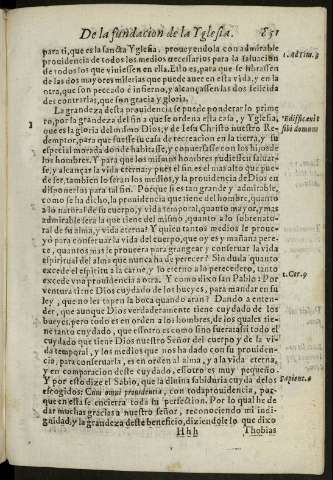 De la fundacion de la Yglesia. 851
para ti, que es la sancta Yglesia, proueyendola con admirable
prouidencia de todos los medios necessarios para la saluacion
de todos los que viniessen en ella. Esto es, para que se librassen
de las dos mayores miserias que puede auer en esta vida, y en la
otra, que son peccado è infierno, y alcançassen las dos felicida
des contrarias, que son gracia y gloria.
La grandeza desta prouidencia se puede ponderar lo prime
ro, por la grandeza del fin a que se ordena esta casa, y Yglesia,
que es la gloria del mismo Dios, y de Iesu Christo nuestro Re-
demptor, para que fuesse su casa de recreacion en la tierra, y su
especial morada donde habitasse, y conuersasse con los hijos de
los hombres. Y para que los mismos hombres pudiessen saluar-
se, y alcançar la vida eterna: pues el fin es el mas alto que pue-
de ser, tambien lo seran los medios, y la prouidencia de Dios en
disponerlos para tal fin. Porque si es tan grande y admirable,
como se ha dicho, la prouidencia que tiene del hombre, quanto
a lo natural de su cuerpo, y vida temporal, quanto mayor, y mas
admirable sera la que tiene del mismo, quanto a lo sobrenatu-
ral de su alma, y vida eterna? Y quien tantos medios le proue-
yò para conseruar la vida del cuerpo, que oy es y mañana pere-
ce, quantos mas le prouera para grangear y conseruar la vida
espiritual del alma que nunca ha de perecer? Sin duda quanto
excede el espiritu a la carne, y lo eterno a lo perecedero, tanto
excede vna prouidencia a otra. Y como dixo san Pablo: Por
ventura tiene Dios cuydado de los bueyes, para mandar en su
ley, que no les tapen la boca quando aran? Dando a enten-
der, que aunque Dios verdaderamente tiene cuydado de los
bueyes, pero todo es en orden a los hombres, de los quales tie-
ne tanto cuydado, que essotro es como sino fuera: assi todo el
cuydado que tiene Dios nuestro Señor del cuerpo y de la vi-
da temporal, y los medios que nos ha dado con su prouiden-
cia, para conseruarla, es en orden al alma, y a la vida eterna,
y en comparacion deste cuydado, essotro es muy pequeño.
Y por esto dize el Sabio, que la diuina sabiduria cuyda delos
escogidos: Cum omni prouidentia, con toda prouidencia, por-
que en esta se encierra toda su perfection. Por lo qual he de
dar muchas gracias a nuestro señor, reconociendo mi indi-
gnidad, y la grandeza deste beneficio, diziendole lo que dixo
Hhh Thobias
1. Ad Tim. 3
Edificauit
sibi domum
1. Cor. 9
Sapient. 6